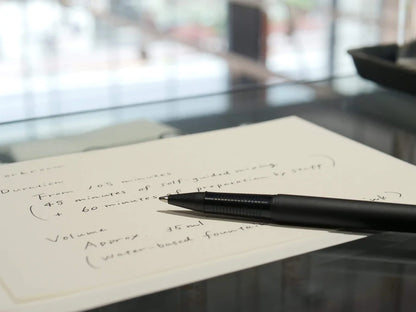 Duration
From 105 minutes
(45 minutes of self guided mixing
+ 60 minutes of preparation by staff)
Volume
Approx. 15 ml
(water-based fountain ink)